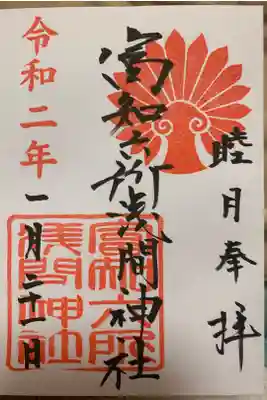 睦月奉拝
富知六所浅間神社
令和二年一月二十一日
富知六所
浅間神社